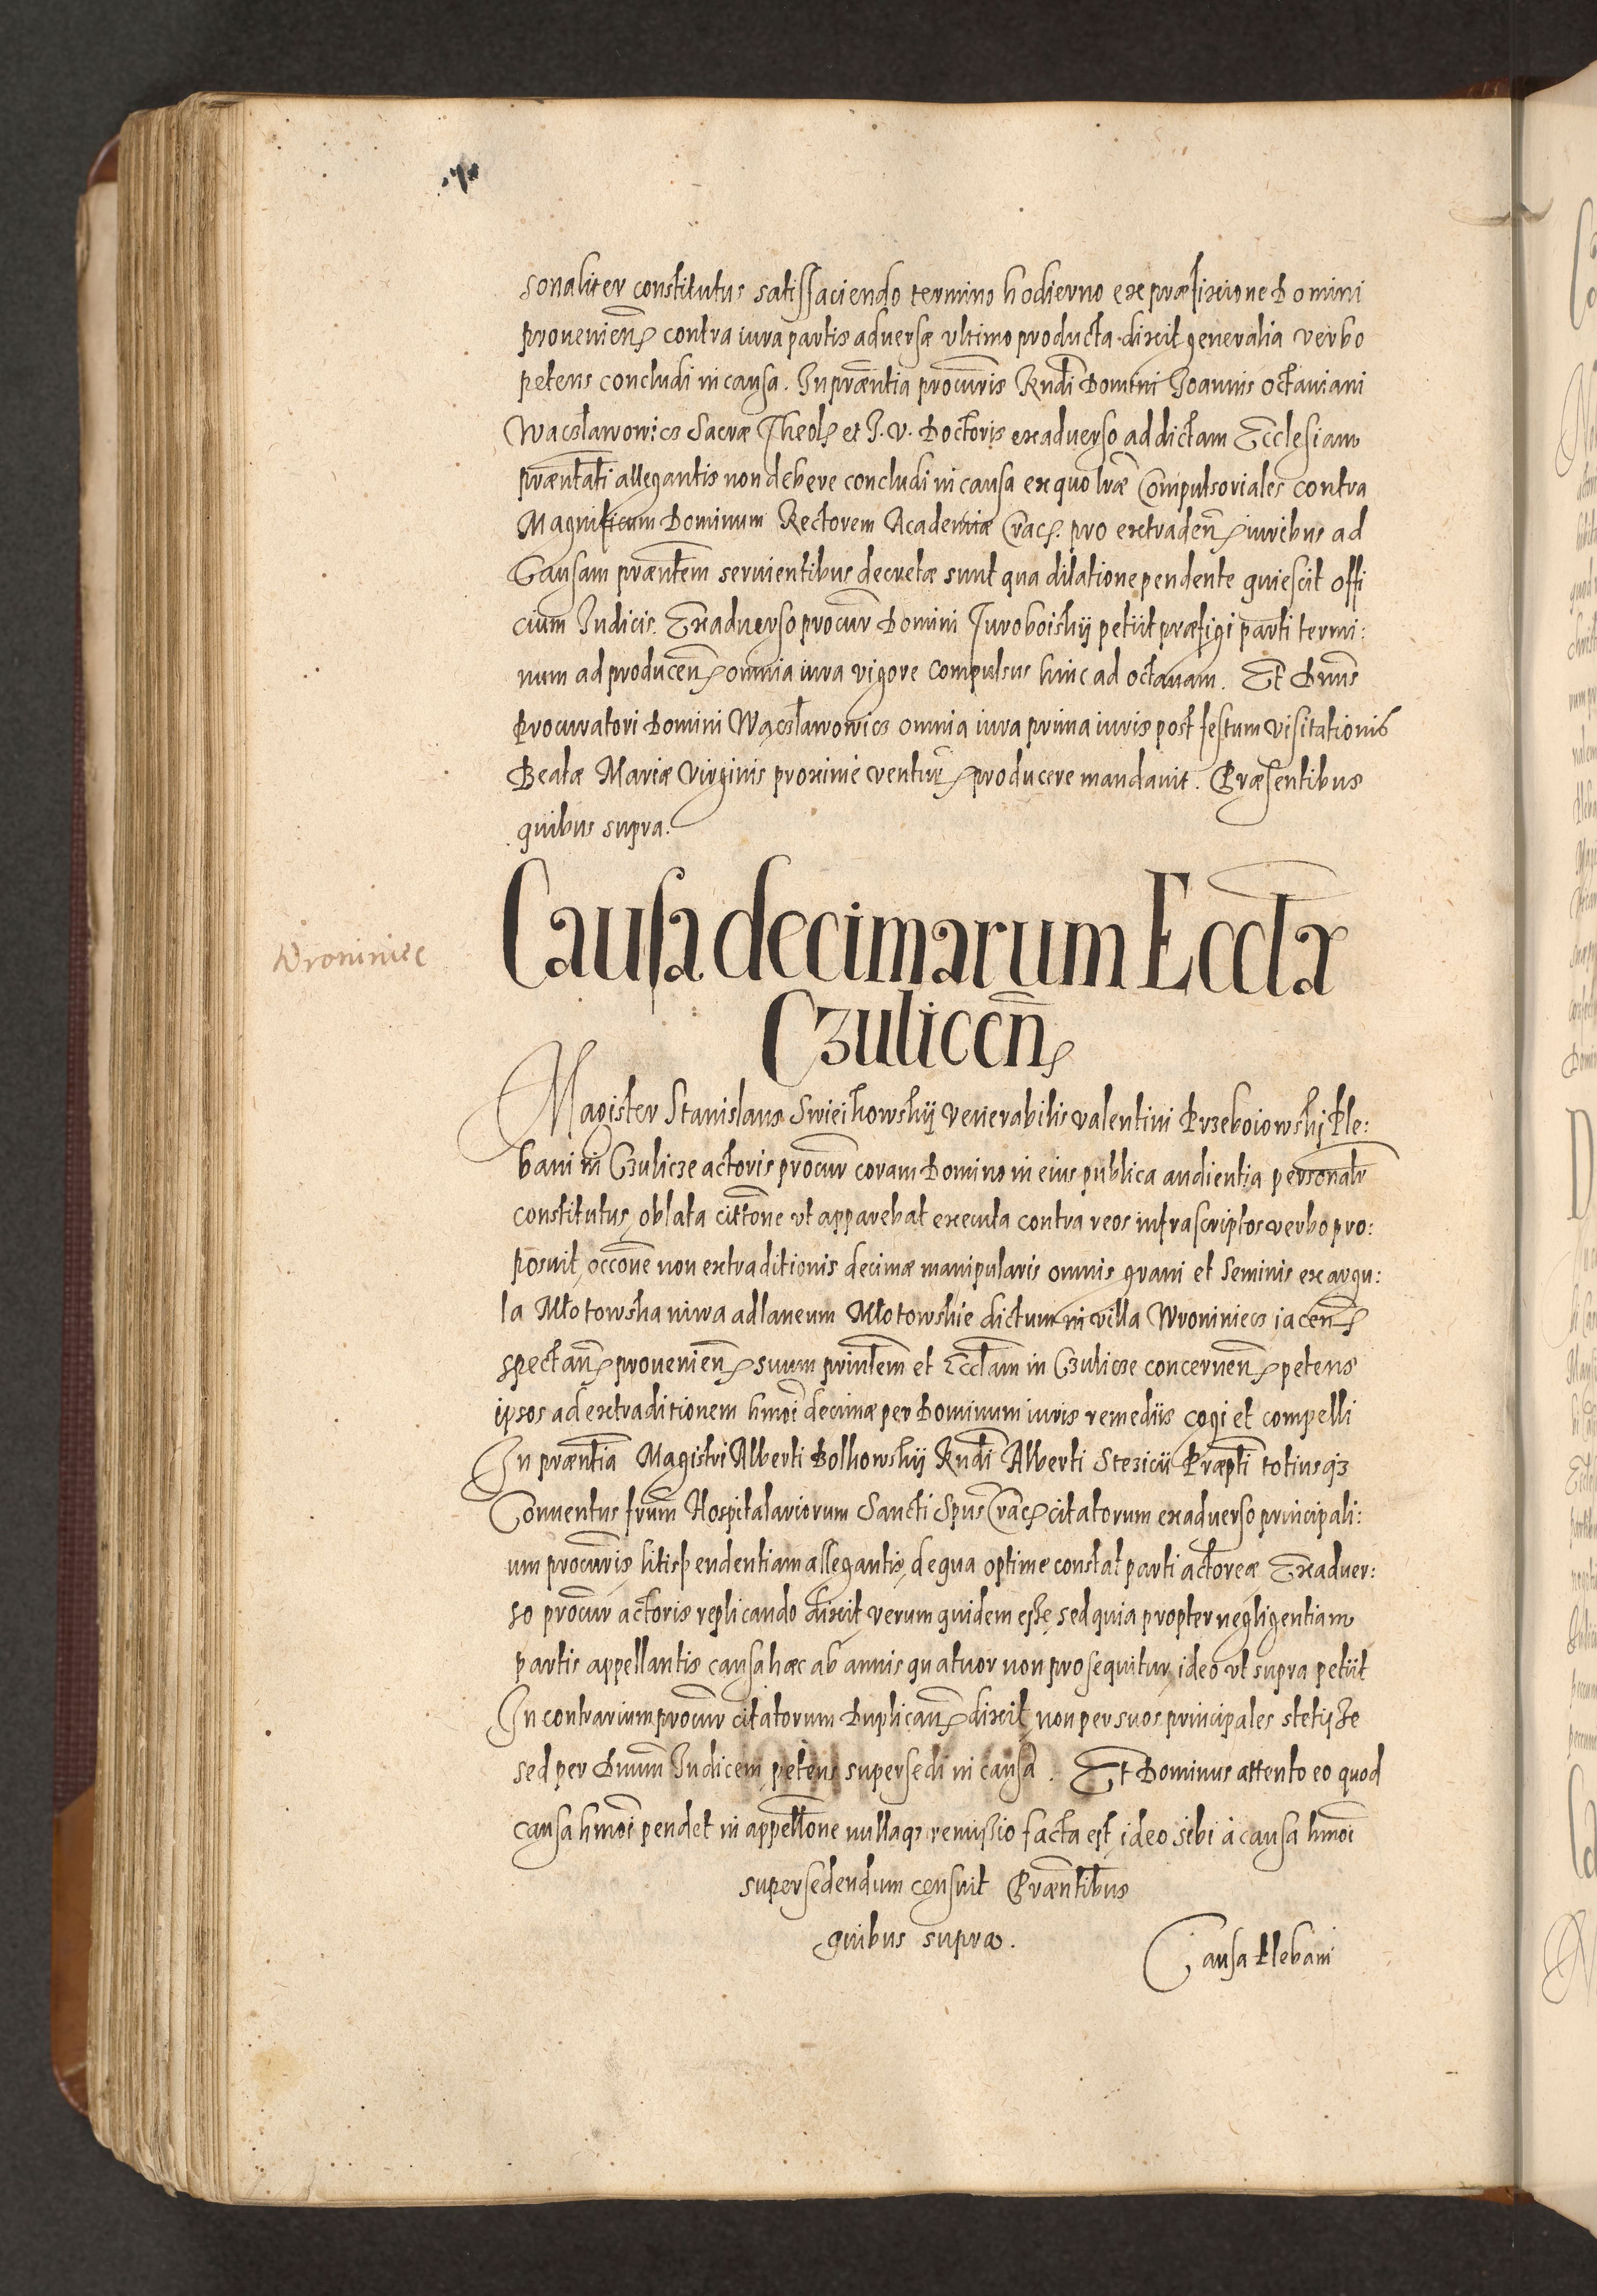 sonaliter constitutus satisfaciendo termino hodierno ex præfixione Domini
prouenien̄ contra iura partis aduersæ vltimo producta dixit generalia verbo
petens concludi in causa. In præn̄tia procur̄is Rn̄di Domini Joannis Octauiani
Waczlawowicz Sacræ Theol. et J. V. Doctoris exaduerso ad dictam Ecclesiam
præn̄tati allegantis non debere concludi in causa ex quo lr̄æ Compulsoriales contra
Magnificum Dominum Rectorem Academiæ Crac. pro extraden̄ iuribus ad
Causam præn̄tem seruientibus decretæ sunt qua dilatione pendente quiescit offi
cium Judicis. Exaduerso procur̄ Domini Juroboishÿ petÿt præfigi parti termi:
num ad producen̄ omnia iura vigore compulsus hinc ad octauam. Et Dn̄us
Procuratori Domini Waczlawowicz omnia iura prima iuris post festum Visitationis
Beatæ Mariæ Virginis proxime ventur̄ producere mandauit. Præsentibus
quibus supra.
Wroniniec
Causa decimarum Eccl̄æ
Czulicen̄
Magister Stanislaus Swieihowshÿ venerabilis Valentini Przeboiowshÿ Ple:
bani in Czulicze actoris procur̄ coram Domino in eius publica audientia personalr̄
constitutus, oblata citt̄one vt apparebat executa contra reos infrascriptos verbo pro:
posuit, occ̄one non extraditionis decimæ manipularis omnis grani et Seminis ex argu:
la Młotowsha niwa ad laneum Młotowshie dictum in villa Wroniniecz iacen̄
spectan̄ prouenien̄ suum prin̄lem et Eccl̄am in Czulicze concernen̄ petens
ipsos ad extraditionem hmōi decimæ per Dominum iuris remediis cogi et compelli
In præn̄tia Magistri Alberti Bolhowshÿ Rn̄di Alberti Stezicii Præp̄ti totiusqȝ
Conuentus fr̄um Hospitalariorum Sancti Spūs Crac̄ citatorum exaduerso principali:
um procur̄is litispendentiam allegantis, de qua optime constat parti actoreæ Exaduer:
so procur̄ actoris replicando dixit verum quidem esse, sed quia propter negligentiam
partis appellantis causa hæc ab annis quatuor non prosequitur, ideo vt supra petiit
In contrarium procur̄ citatorum Duplican̄ dixit, non per suos principales stetisse
sed per Dn̄um Judicem, petens supersedi in causa. Et Dominus attento eo quod
causa hmōi pendet in appell̄one nullaqȝ remissio facta est, ideo sibi à causa hmōi
supersedendum censuit Præn̄tibus
quibus supra.
Causa Plebani